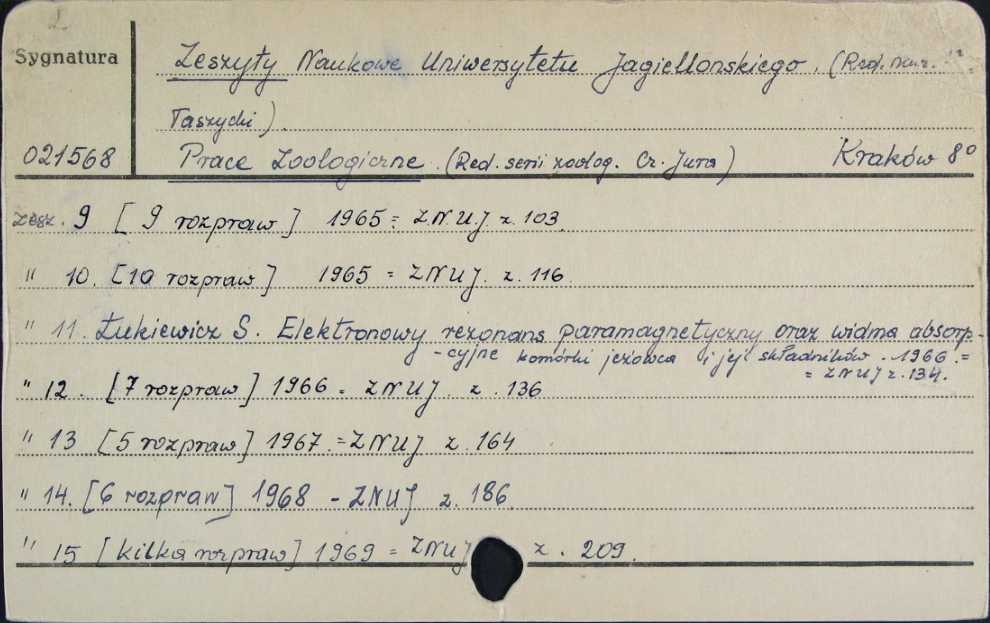 Sygnatura
Zeszyty Naukowe Uniwersytetu Jagiellonskiego. (Red. nacz.
Taszycki).
021568 Prace Zoologiczne. (Red. serii zoolog. Cz. Jura) Kraków 8°
Zesz. 9 [9 rozpraw] 1965 = ZNUJ z. 103.
" 10. [10 rozpraw] 1965 = ZNUJ. z. 116.
" 11. Łukiewicz S. Elektronowy rezonans paramagnetyczny oraz widma absorp-
-cyjne komórki jeżowca i jej składników. 1966. =
= ZNUJ z. 134.
" 12. [7 rozpraw] 1966 = ZNUJ. z. 136
" 13 [5 rozpraw] 1967. = ZNUJ z. 164
" 14. [6 rozpraw] 1968 - ZNUJ z. 186.
" 15 [kilka rozpraw] 1969 = ZNUJ z. 209.